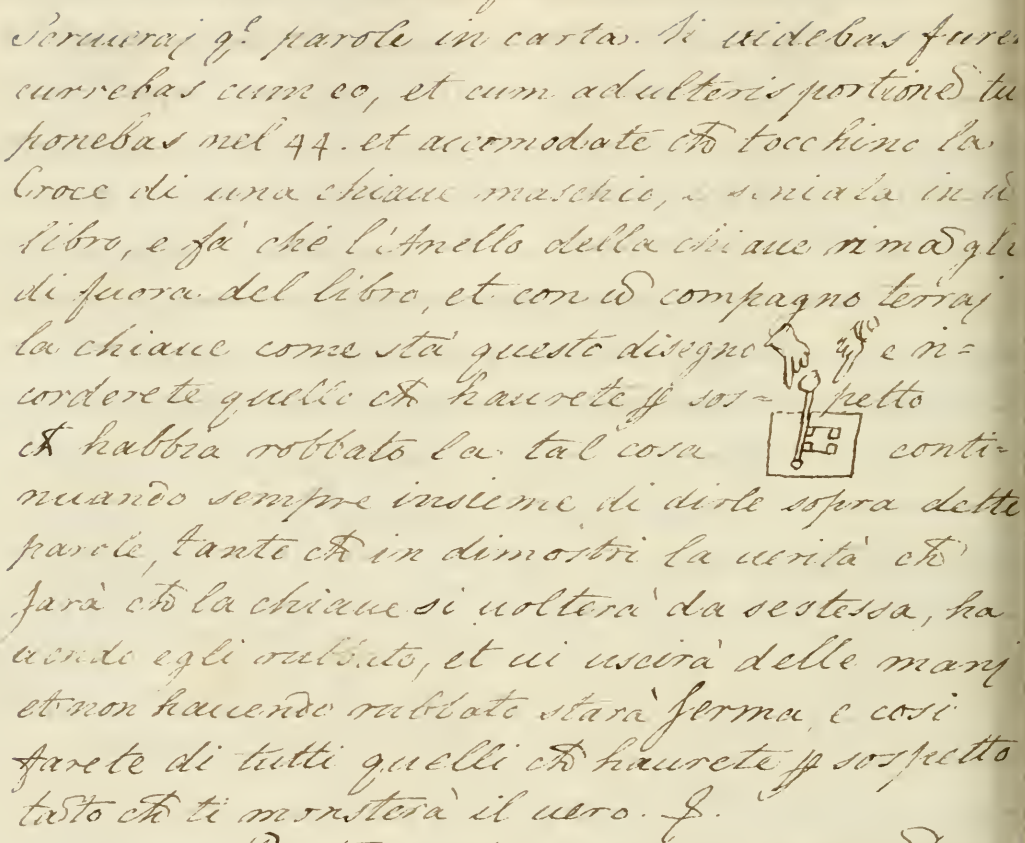 Scriueraj q.e parole in carta. Si uidebas fure
currebas cum eo, et cum adulteris portionē tu
ponebas nel 44. et accomodate ch̄ tocchino la
Croce di una chiaue maschio, e in ū
libro, e fà che l'Anello della chiaue rimāghi
di fuora del libro, et con ū compagno terraj
la chiaue come stà questo disegno e ri=
corderete quelli ch̄ haurete ꝑ sos= petto
ch̄ habbia robbato la tal cosa conti=
nuando sempre insieme di dirle sopra dette
parole, tante ch̄ in dimostri la uerità ch̄
farà ch̄ la chiaue si uolterà da sestessa, ha
uendo egli rubbato, et ui uscirà delle manj
et non hauendo rubbato starà ferma, e cosi
farete di tutti quelli ch̄ haurete ꝑ sospetto
tāto ch̄ ti monsterà il uero.